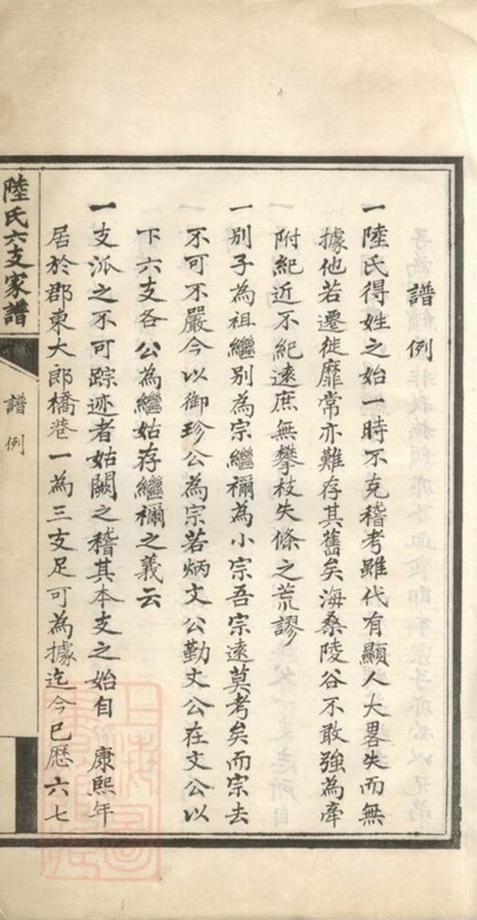 譜例
一陸氏得姓之始一時不克稽考雖代有顯人大畧失而無
據他若遷徙靡常亦難存其舊矣海桑陵谷不敢強為牽
附紀近不紀遠庶無攀枝失條之荒謬
一別子為祖繼別為宗繼禰為小宗吾宗遠莫考矣而宗去
不可不嚴今以御珍公為宗若炳文公勤文公在文公以
下六支各公為繼姑存繼禰之義云
一支派之不可踪迹者姑闕之稽其本支之始自 康熙年
居於郡東大郎橋巷一為三支足可為據迄今已歷六七
陸氏六支家譜
譜例